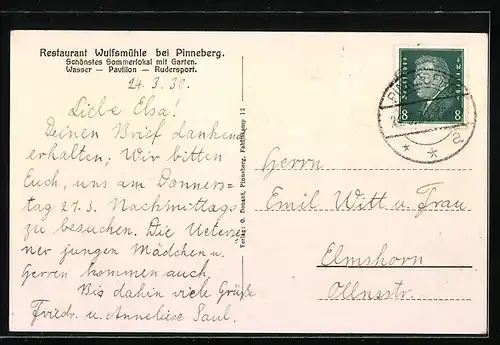 Restaurant Wulfsmühle bei Pinneberg.
Schönstes Sommerlokal mit Garten.
Wasser — Pavillon — Rudersport.
24.3.30.
Liebe Elsa!
Deinen Brief dankend
erhalten; Wir bitten
Euch, uns am Donners=
tag 27.3. Nachmittags
zu besuchen. Die Ueterse=
ner jungen Mädchen u.
Herren kommen auch.
Bis dahin viele Grüße
Friedr. u. Anneliese Saul.
Verlag: O. Pinneberg, Fahltskamp 12
DEUTSCHES REICH
8 8
Herrn
Emil Witt u. Frau
Elmshorn
Ollnsstr.